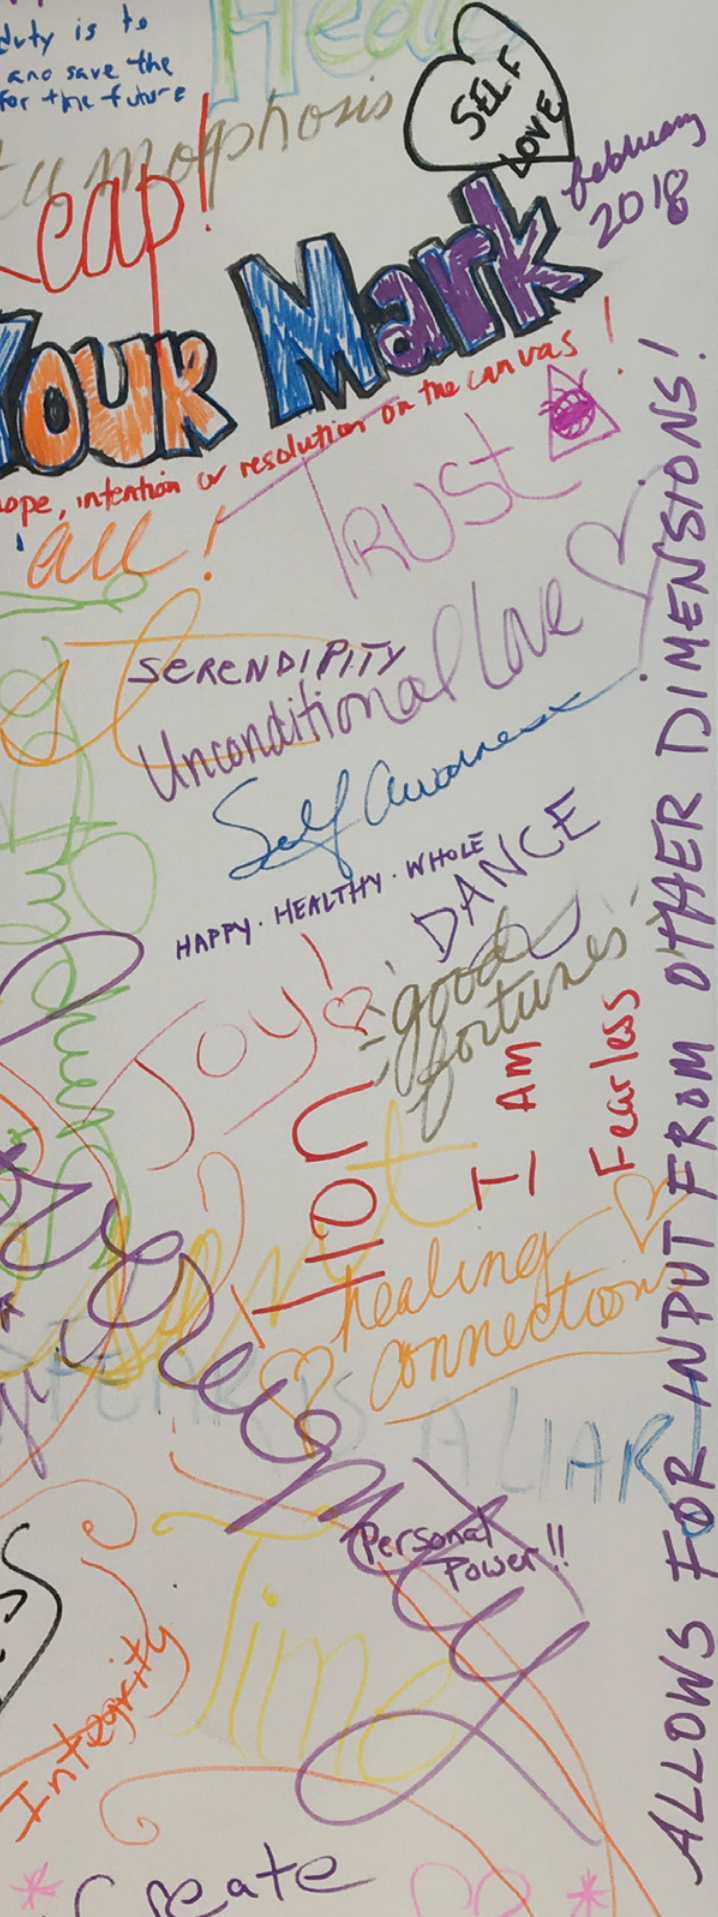 duty is to
and save the
for the future
Heal
SELF
LOVE
february
2018
Leap!
Your Mark
hope, intention or resolution on the canvas!
all!
TRUST
SERENDIPITY
Unconditional Love
Self Awarness
HAPPY. HEALTHY. WHOLE
DANCE
JOY!
good
fortunes
I AM
Fearless
healing
connection
FEAR IS A LIAR
Personal
Power!!
Time
Integrity
Create
ALLOWS FOR INPUT FROM OTHER DIMENSIONS!